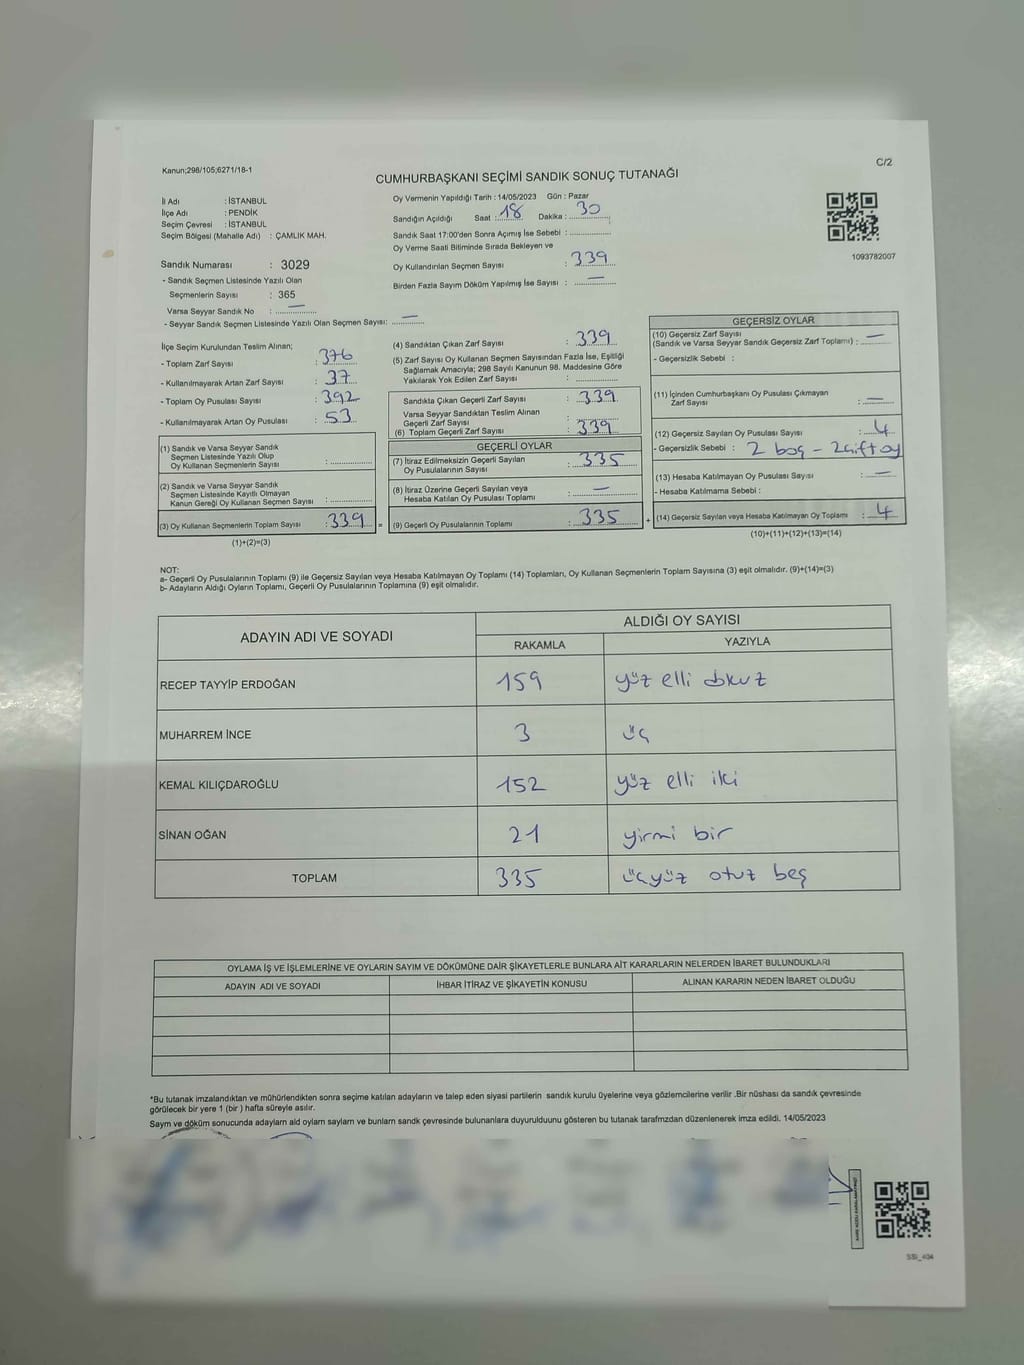 Kanun;298/105;6271/18-1
C/2
CUMHURBAŞKANI SEÇİMİ SANDIK SONUÇ TUTANAĞI
İl Adı : İSTANBUL
İlçe Adı : PENDİK
Seçim Çevresi : İSTANBUL
Seçim Bölgesi (Mahalle Adı) : ÇAMLIK MAH.
Oy Vermenin Yapıldığı Tarih : 14/05/2023 Gün : Pazar
Sandığın Açıldığı Saat : 18 Dakika : 30
Sandık Saat 17:00'den Sonra Açımış İse Sebebi :
Oy Verme Saati Bitiminde Sırada Bekleyen ve
Oy Kullandırılan Seçmen Sayısı : 339
Birden Fazla Sayım Döküm Yapılmış İse Sayısı : —
1093782007
Sandık Numarası : 3029
- Sandık Seçmen Listesinde Yazılı Olan
Seçmenlerin Sayısı : 365
Varsa Seyyar Sandık No : —
- Seyyar Sandık Seçmen Listesinde Yazılı Olan Seçmen Sayısı: —
İlçe Seçim Kurulundan Teslim Alınan;
- Toplam Zarf Sayısı : 376
- Kullanılmayarak Artan Zarf Sayısı : 37
- Toplam Oy Pusulası Sayısı : 392
- Kullanılmayarak Artan Oy Pusulası : 53
(1) Sandık ve Varsa Seyyar Sandık
Seçmen Listesinde Yazılı Olup
Oy Kullanan Seçmenlerin Sayısı :
(2) Sandık ve Varsa Seyyar Sandık
Seçmen Listesinde Kayıtlı Olmayan
Kanun Gereği Oy Kullanan Seçmen Sayısı :
(3) Oy Kullanan Seçmenlerin Toplam Sayısı : 339 =
(1)+(2)=(3)
(4) Sandıktan Çıkan Zarf Sayısı : 339
(5) Zarf Sayısı Oy Kullanan Seçmen Sayısından Fazla İse, Eşitliği
Sağlamak Amacıyla; 298 Sayılı Kanunun 98. Maddesine Göre
Yakılarak Yok Edilen Zarf Sayısı :
Sandıkta Çıkan Geçerli Zarf Sayısı : 339
Varsa Seyyar Sandıktan Teslim Alınan
Geçerli Zarf Sayısı :
(6) Toplam Geçerli Zarf Sayısı : 339
GEÇERLİ OYLAR
(7) İtiraz Edilmeksizin Geçerli Sayılan
Oy Pusulalarının Sayısı : 335
(8) İtiraz Üzerine Geçerli Sayılan veya
Hesaba Katılan Oy Pusulası Toplamı : —
(9) Geçerli Oy Pusulalarının Toplamı : 335 +
GEÇERSİZ OYLAR
(10) Geçersiz Zarf Sayısı
(Sandık ve Varsa Seyyar Sandık Geçersiz Zarf Toplamı) : —
- Geçersizlik Sebebi :
(11) İçinden Cumhurbaşkanı Oy Pusulası Çıkmayan
Zarf Sayısı : —
(12) Geçersiz Sayılan Oy Pusulası Sayısı : 4
- Geçersizlik Sebebi : 2 boş - 2 çift oy
(13) Hesaba Katılmayan Oy Pusulası Sayısı : —
- Hesaba Katılmama Sebebi :
(14) Geçersiz Sayılan veya Hesaba Katılmayan Oy Toplamı : 4
(10)+(11)+(12)+(13)=(14)
NOT:
a- Geçerli Oy Pusulalarının Toplamı (9) ile Geçersiz Sayılan veya Hesaba Katılmayan Oy Toplamı (14) Toplamları, Oy Kullanan Seçmenlerin Toplam Sayısına (3) eşit olmalıdır. (9)+(14)=(3)
b- Adayların Aldığı Oyların Toplamı, Geçerli Oy Pusulalarının Toplamına (9) eşit olmalıdır.
ADAYIN ADI VE SOYADI
ALDIĞI OY SAYISI
RAKAMLA YAZIYLA
RECEP TAYYİP ERDOĞAN 159 yüz elli dokuz
MUHARREM İNCE 3 üç
KEMAL KILIÇDAROĞLU 152 yüz elli iki
SİNAN OĞAN 21 yirmi bir
TOPLAM 335 üçyüz otuz beş
OYLAMA İŞ VE İŞLEMLERİNE VE OYLARIN SAYIM VE DÖKÜMÜNE DAİR ŞİKAYETLERLE BUNLARA AİT KARARLARIN NELERDEN İBARET BULUNDUKLARI
ADAYIN ADI VE SOYADI İHBAR İTİRAZ VE ŞİKAYETİN KONUSU ALINAN KARARIN NEDEN İBARET OLDUĞU
*Bu tutanak imzalandıktan ve mühürlendikten sonra seçime katılan adayların ve talep eden siyasi partilerin sandık kurulu üyelerine veya gözlemcilerine verilir .Bir nüshası da sandık çevresinde
görülecek bir yere 1 (bir ) hafta süreyle asılır.
Saym ve döküm sonucunda adaylarn ald oylarn saylarn ve bunlarn sandk çevresinde bulunanlara duyurulduunu gösteren bu tutanak tarafmzdan düzenlenerek imza edildi. 14/05/2023
SSİ_404